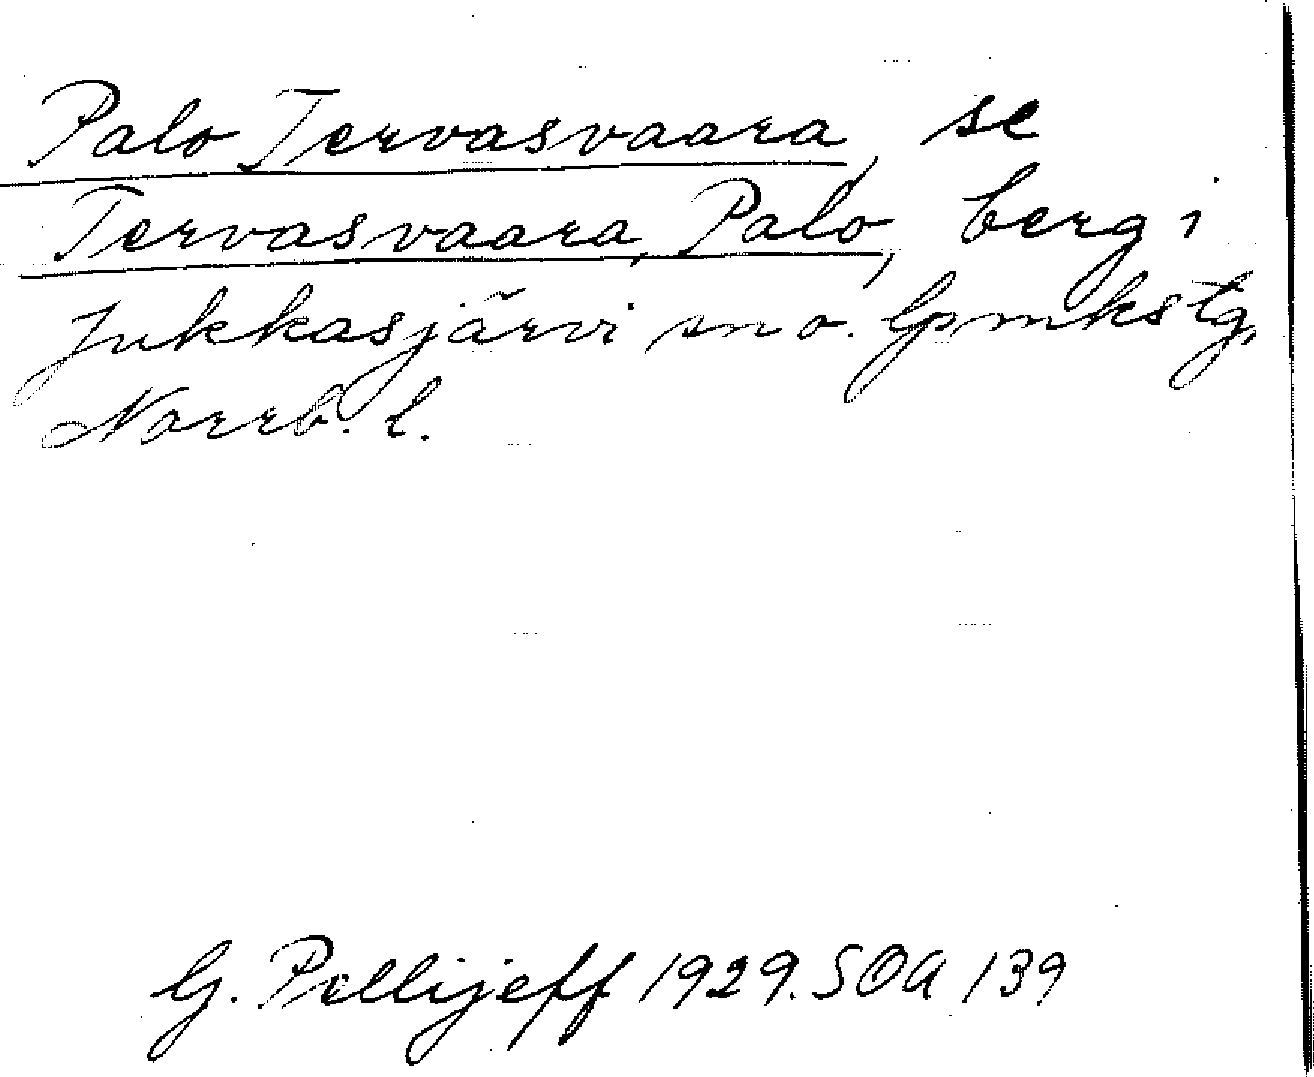 Palo Tervasvaara, se
Tervasvaara, Palo, berg i
Jukkasjärvi sn o. lpmkstg,
Norrb. l.
G. Pellijeff 1929. SOA 139